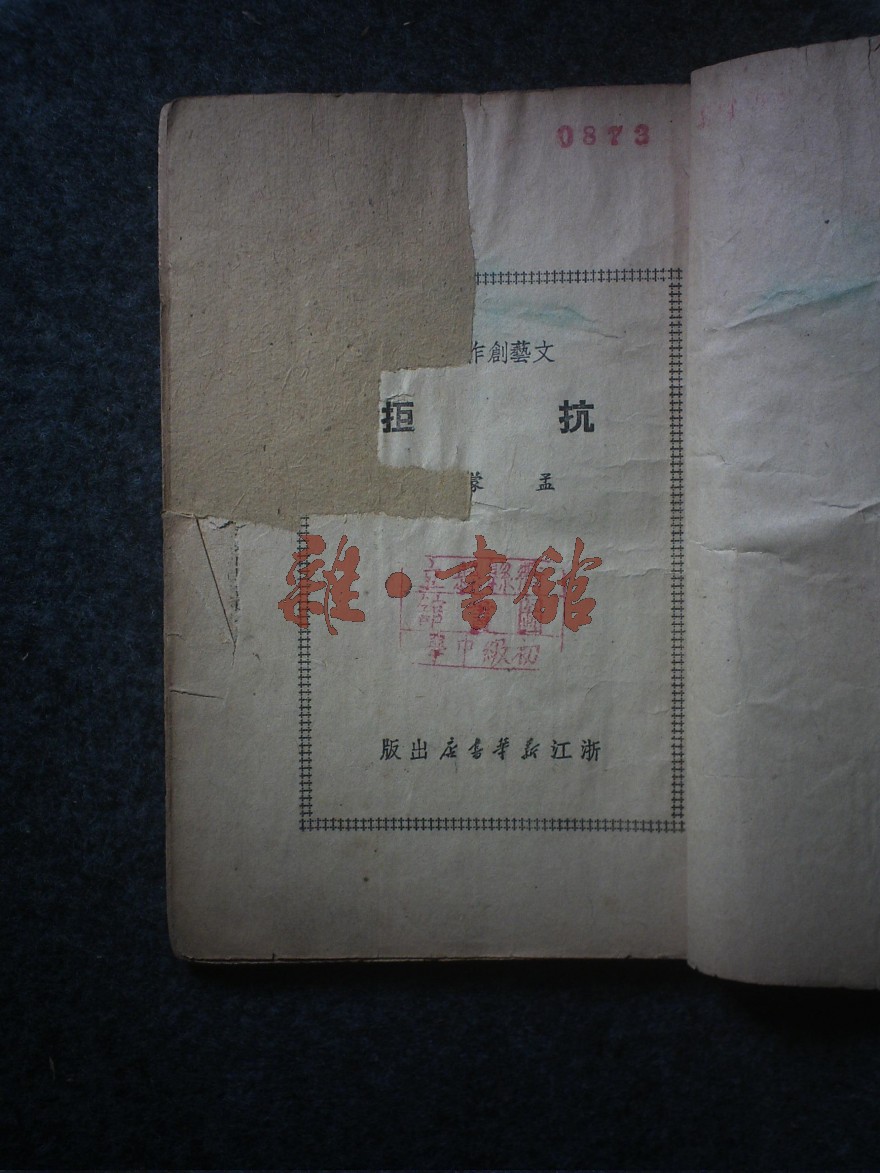 0873
文藝創作
抗拒
孟蒙
雜·書館
初級中學
浙江新華書店出版